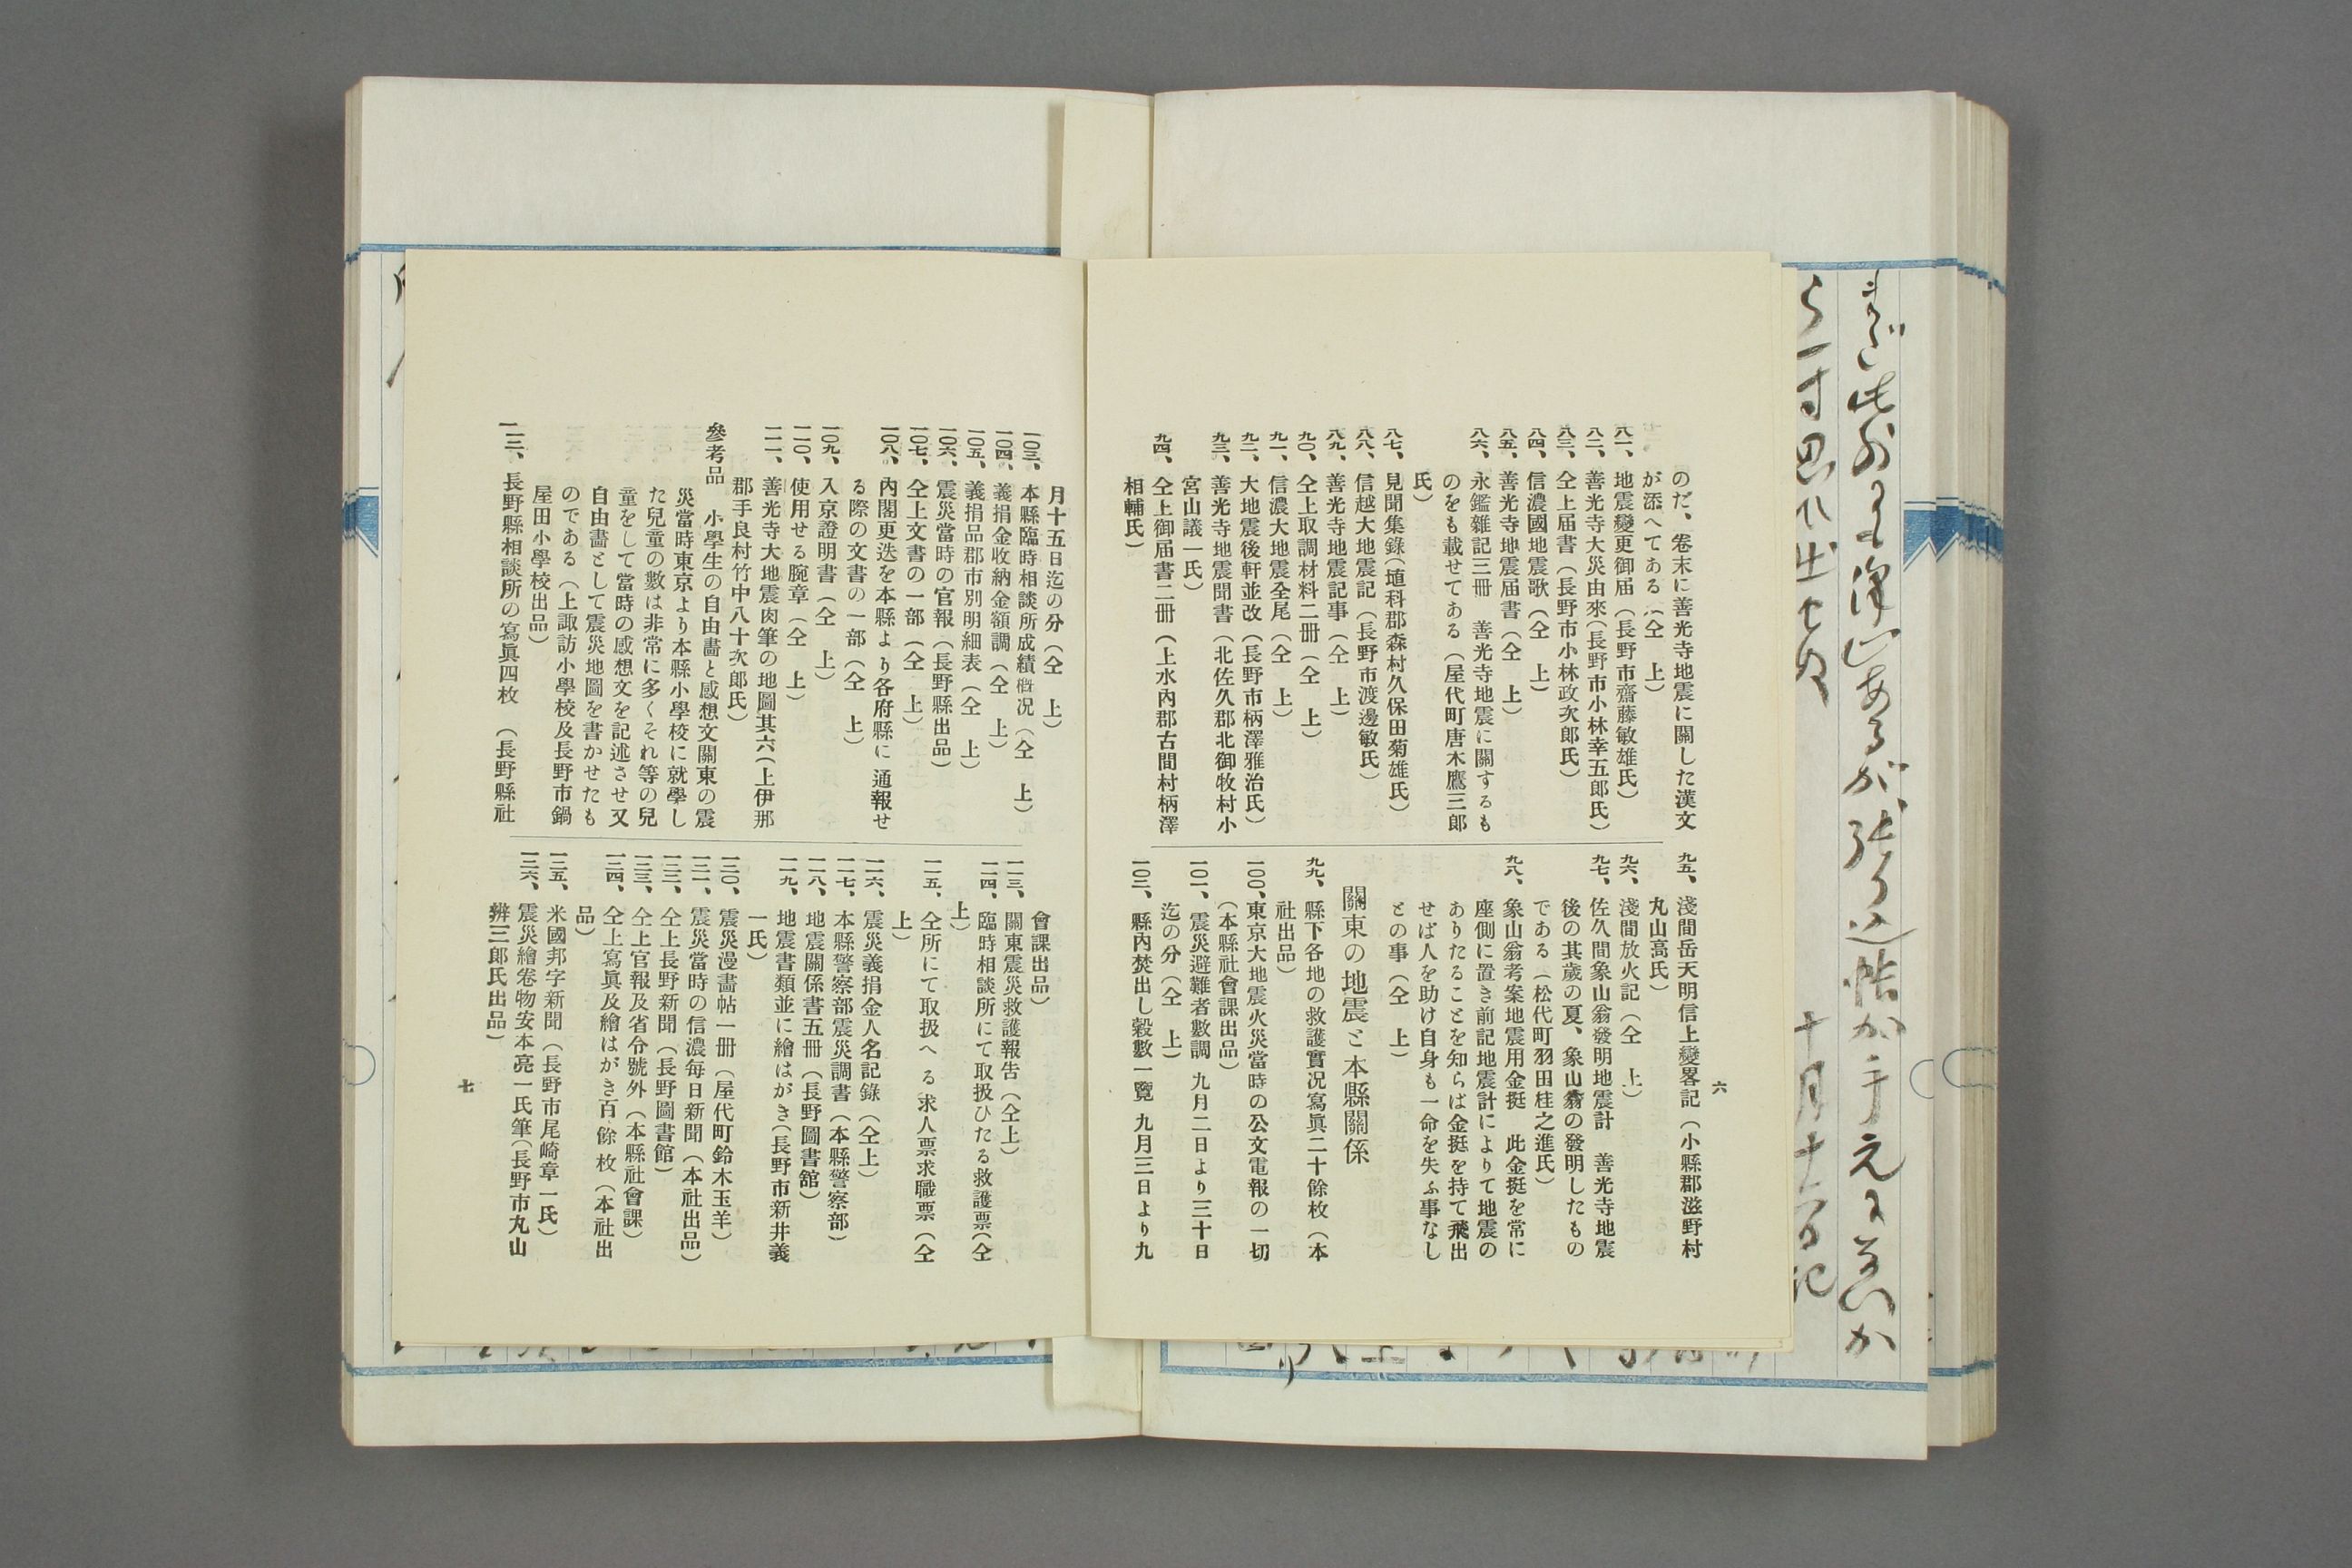 のだ、卷末に善光寺地震に關した漢文
が添へてある（仝　上）
八一、地震變更御届（長野市齋藤敏雄氏）
八二、善光寺大災由來（長野市小林幸五郎氏）
八三、仝上届書（長野市小林政次郎氏）
八四、信濃國地震歌（仝　上）
八五、善光寺地震届書（仝　上）
八六、永鑑雜記三冊　善光寺地震に關するも
のをも載せてある（屋代町唐木鷹三郎
氏）
八七、見聞集錄（埴科郡森村久保田菊雄氏）
八八、信越大地震記（長野市渡邊敏氏）
八九、善光寺地震記事（仝　上）
九〇、仝上取調材料二冊（仝　上）
九一、信濃大地震全尾（仝　上）
九二、大地震後軒並改（長野市柄澤雅治氏）
九三、善光寺地震聞書（北佐久郡北御牧村小
宮山議一氏）
九四、仝上御届書二冊（上水內郡古間村柄澤
相輔氏）
九五、淺間岳天明信上變畧記（小縣郡滋野村
丸山高氏）
九六、淺間放火記（仝　上）
九七、佐久間象山翁發明地震計　善光寺地震
後の其歲の夏、象山翁の發明したもの
である（松代町羽田桂之進氏）
九八、象山翁考案地震用金挺　此金挺を常に
座側に置き前記地震計によりて地震の
ありたることを知らば金挺を持て飛出
せば人を助け自身も一命を失ふ事なし
との事（仝　上）
關東の地震と本縣關係
九九、縣下各地の救護實況寫眞二十餘枚（本
社出品）
一〇〇、東京大地震火災當時の公文電報の一切
（本縣社會課出品）
一〇一、震災避難者數調　九月二日より三十日
迄の分（仝　上）
一〇二、縣內焚出し穀數一覽　九月三日より九
六
月十五日迄の分（仝　上）
一〇三、本縣臨時相談所成績概况（仝　上）
一〇四、義捐金收納金額調（仝　上）
一〇五、義捐品郡市別明細表（仝　上）
一〇六、震災當時の官報（長野縣出品）
一〇七、仝上文書の一部（仝　上）
一〇八、內閣更迭を本縣より各府縣に通報せ
る際の文書の一部（仝　上）
一〇九、入京證明書（仝　上）
一一〇、使用せる腕章（仝　上）
一一一、善光寺大地震肉筆の地圖其六（上伊那
郡手良村竹中八十次郎氏）
參考品　小學生の自由畵と感想文關東の震
災當時東京より本縣小學校に就學し
た兒童の數は非常に多くそれ等の兒
童をして當時の感想文を記述させ又
自由畵として震災地圖を書かせたも
のである（上諏訪小學校及長野市鍋
屋田小學校出品）
一一二、長野縣相談所の寫眞四枚　（長野縣社
會課出品）
一一三、關東震災救護報告（仝上）
一一四、臨時相談所にて取扱ひたる救護票（仝
上）
一一五、仝所にて取扱へる求人票求職票（仝
上）
一一六、震災義捐金人名記錄（仝上）
一一七、本縣警察部震災調書（本縣警察部）
一一八、地震關係書五冊（長野圖書館）
一一九、地震書類並に繪はがき（長野市新井義
一氏）
一二〇、震災漫畵帖一冊（屋代町鈴木玉羊）
一二一、震災當時の信濃每日新聞（本社出品）
一二二、仝上長野新聞（長野圖書館）
一二三、仝上官報及省令號外（本縣社會課）
一二四、仝上寫眞及繪はがき百餘枚（本社出
品）
一二五、米國邦字新聞（長野市尾崎章一氏）
一二六、震災繪卷物安本亮一氏筆（長野市丸山
辨三郎氏出品）
七